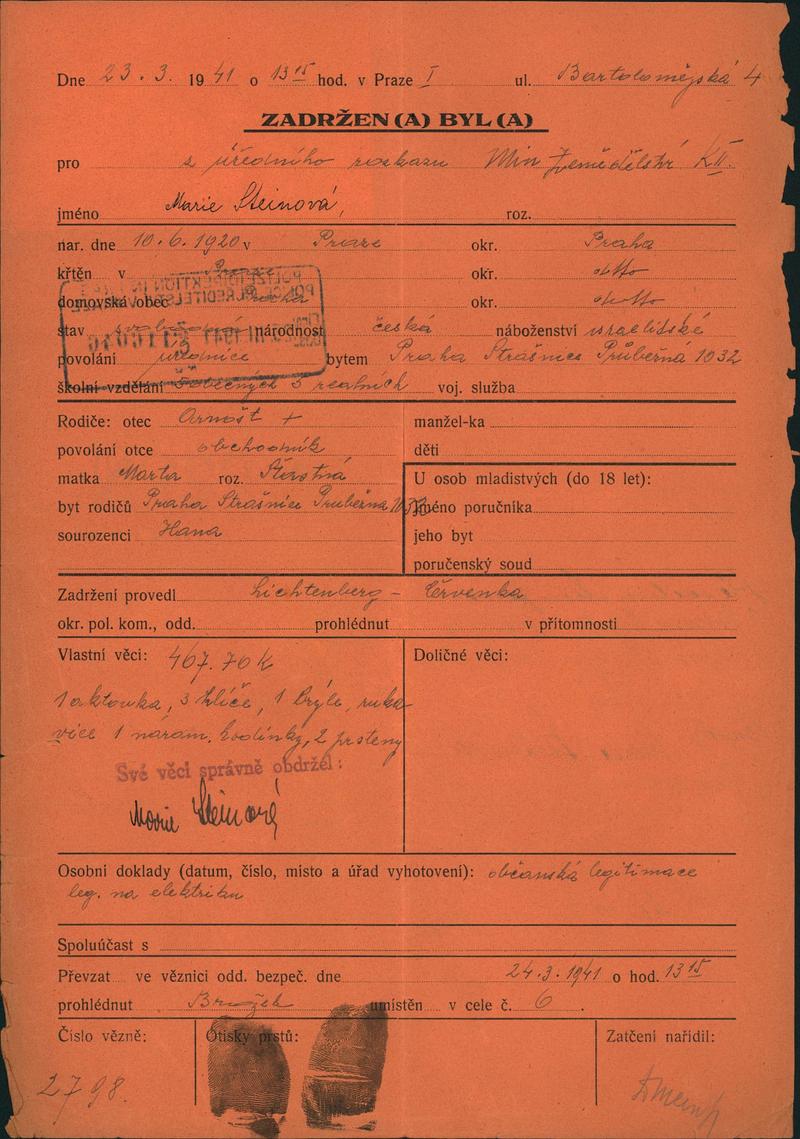 Dne 23.3. 1941 o 13 15 hod. v Praze I ul. Bartolomějská 4
ZADRŽEN(A) BYL(A)
pro z úředního rozkazu Min Zemědělství K II.
jméno Marie Steinová, roz.
nar. dne 10.6.1920 v Praze okr. Praha
křtěn v okr. detto
domovská obec Praha okr. detto
stav svobodná národnost česká náboženství israelidské
povolání úřednice bytem Praha Strašnice Průběžná 1032
školní vzdělání 5 obecných 3 realních voj. služba
Rodiče: otec Arnošt + manžel-ka
povolání otce obchodník děti
matka Marta roz. Šťastná U osob mladistvých (do 18 let):
byt rodičů Praha Strašnice Pruběžna 1032 Jméno poručníka
sourozenci Hana jeho byt
poručenský soud
Zadržení provedl Lichtenberg - Červenka
okr. pol. kom., odd. prohlédnut v přítomnosti
Vlastní věci: 467.70 K Doličné věci:
1 aktovka, 3 klíče, 1 brýle, ruka
vice 1 náram. hodinky, 2 prsteny
Své věci správně obdržel:
Marie Steinová
Osobní doklady (datum, číslo, místo a úřad vyhotovení): občanská legitimace
leg. na elektriku
Spoluúčast s
Převzat ve věznici odd. bezpeč. dne 24.3.1941 o hod. 13 15
prohlédnut umístěn v cele č. 6.
Číslo vězně: Otisky prstů: Zatčení nařídil:
2798.